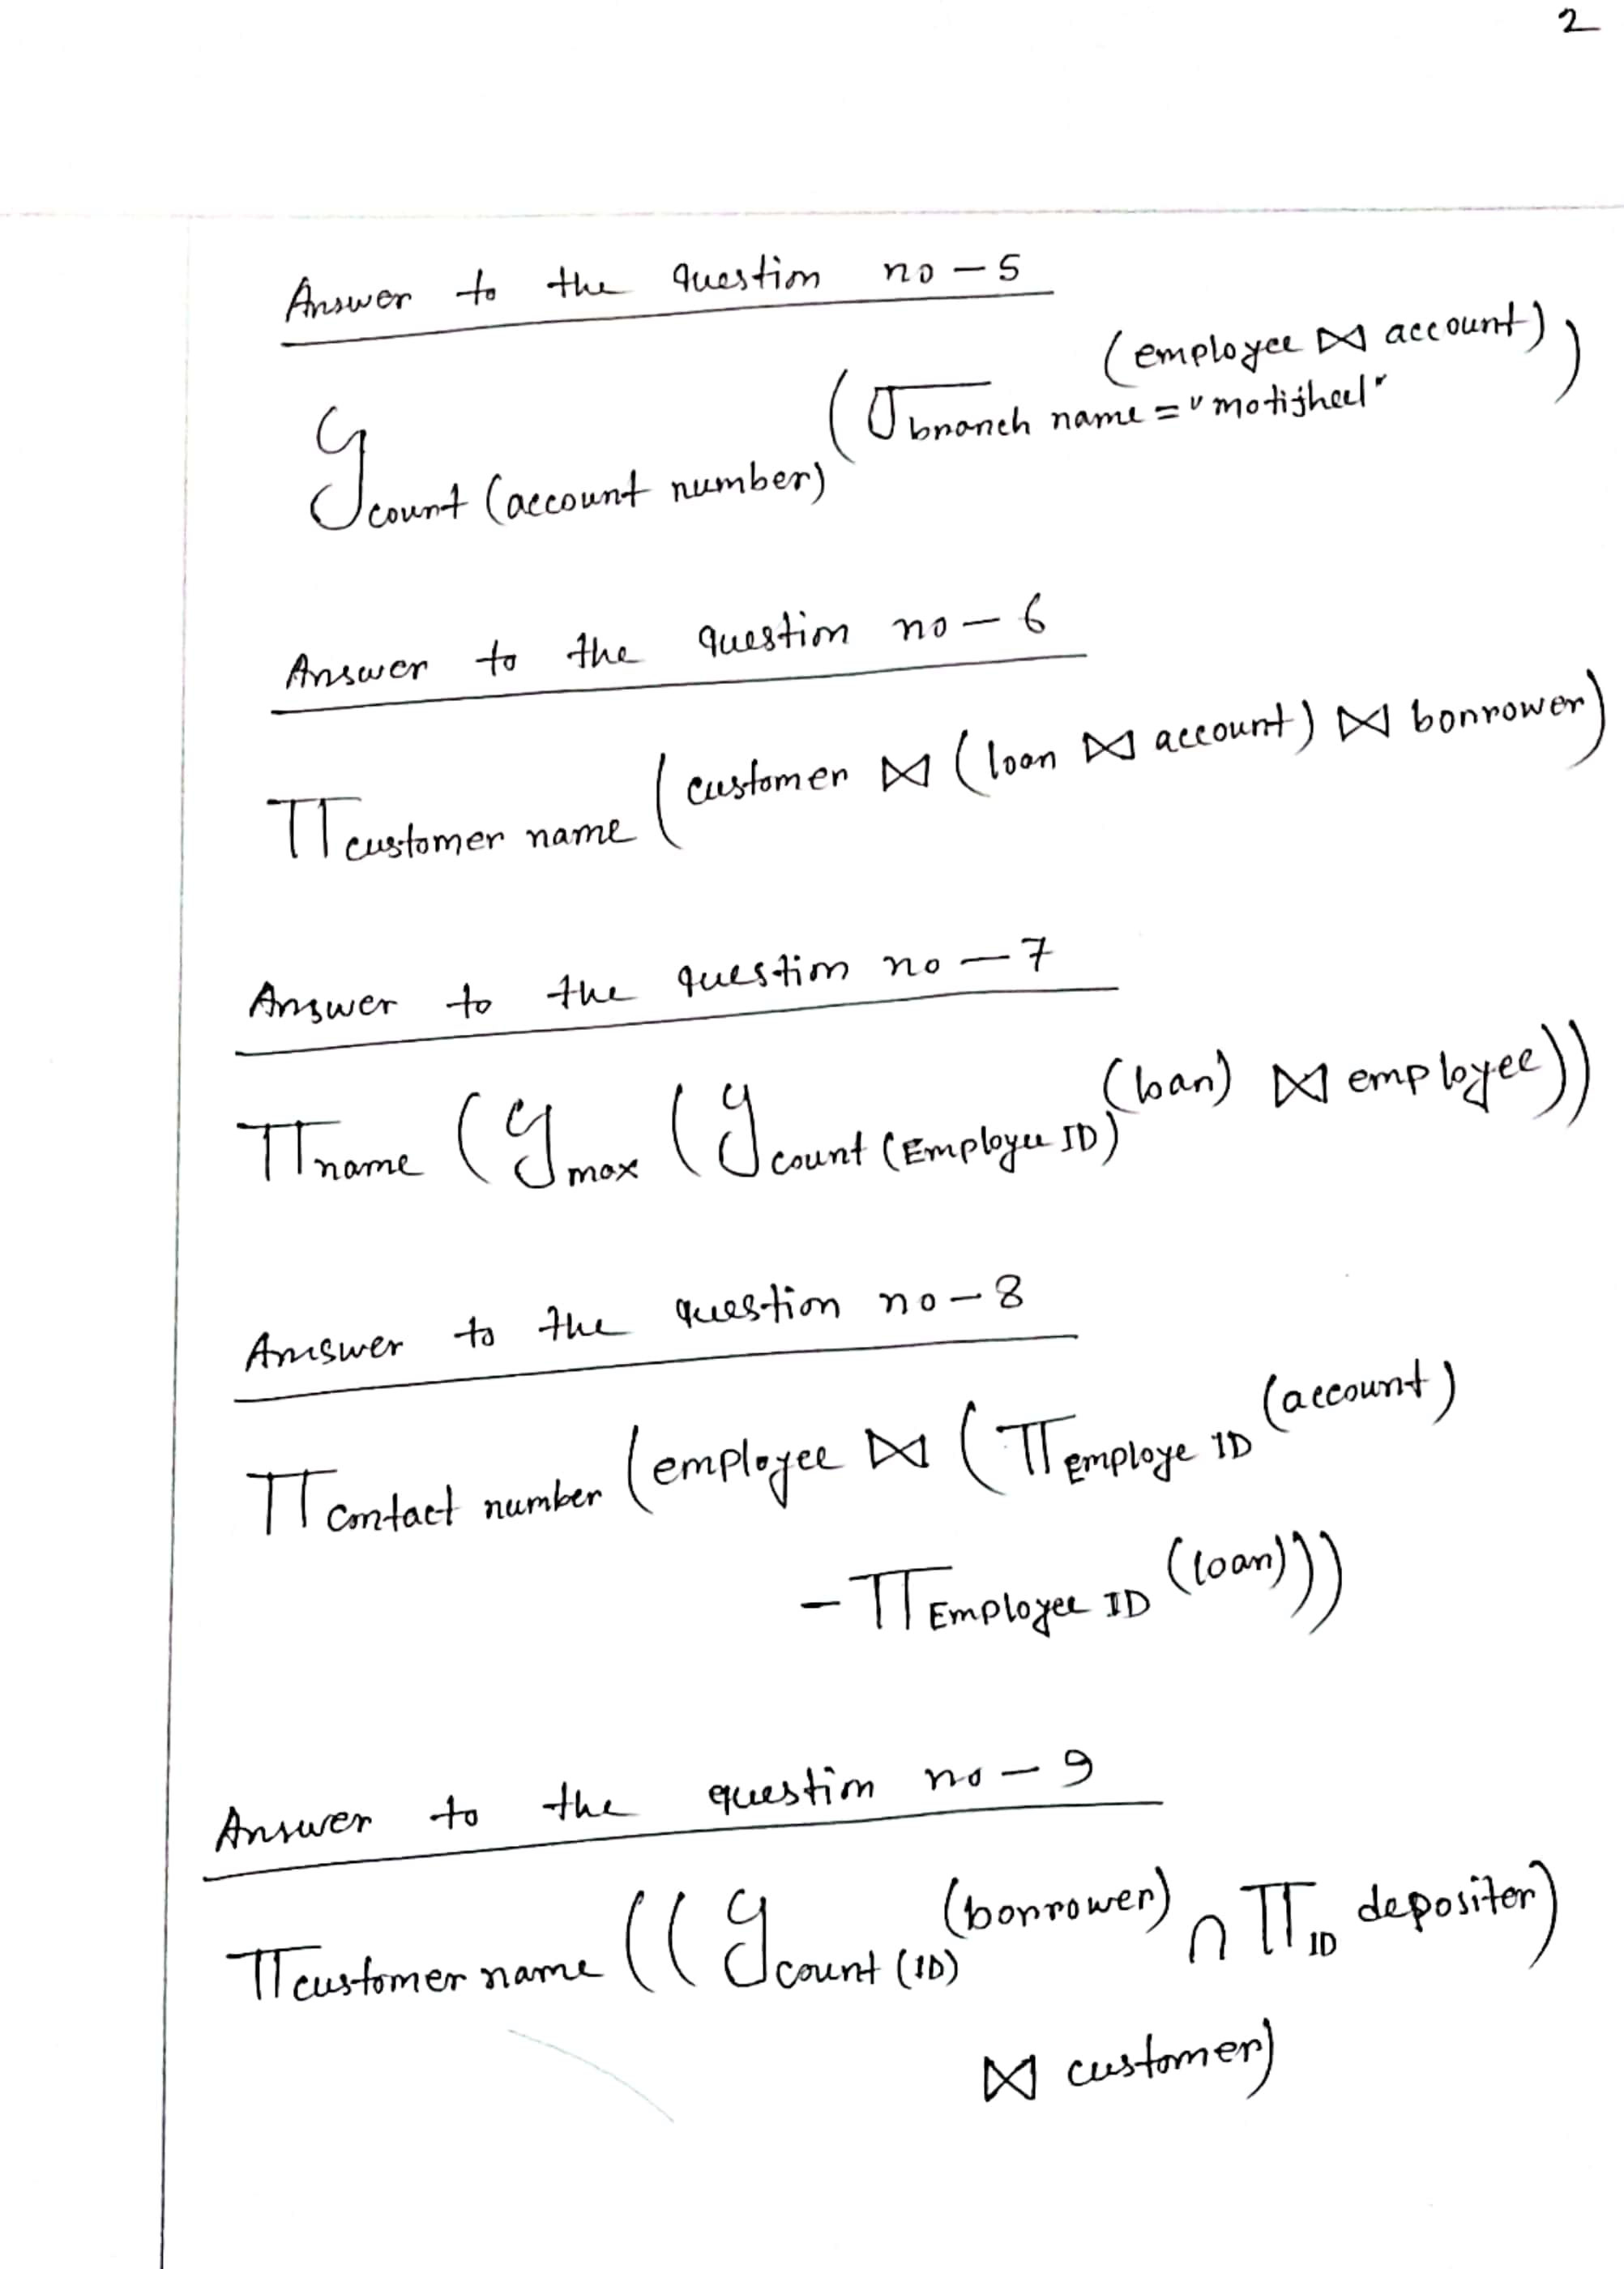 2
Answer to the question no - 5
𝒢 count (account number) (σ branch name = "motijheel" (employee ⋈ account))
Answer to the question no - 6
Π customer name (customer ⋈ (loan ⋈ account) ⋈ borrower)
Answer to the question no - 7
Π name (𝒢 max (𝒢 count (Employee ID) (loan) ⋈ employee))
Answer to the question no - 8
Π contact number (employee ⋈ (Π Employe ID (account)
- Π Employee ID (loan)))
Answer to the question no - 9
Π customer name ((𝒢 count (ID) (borrower) ∩ Π ID depositer)
⋈ customer)